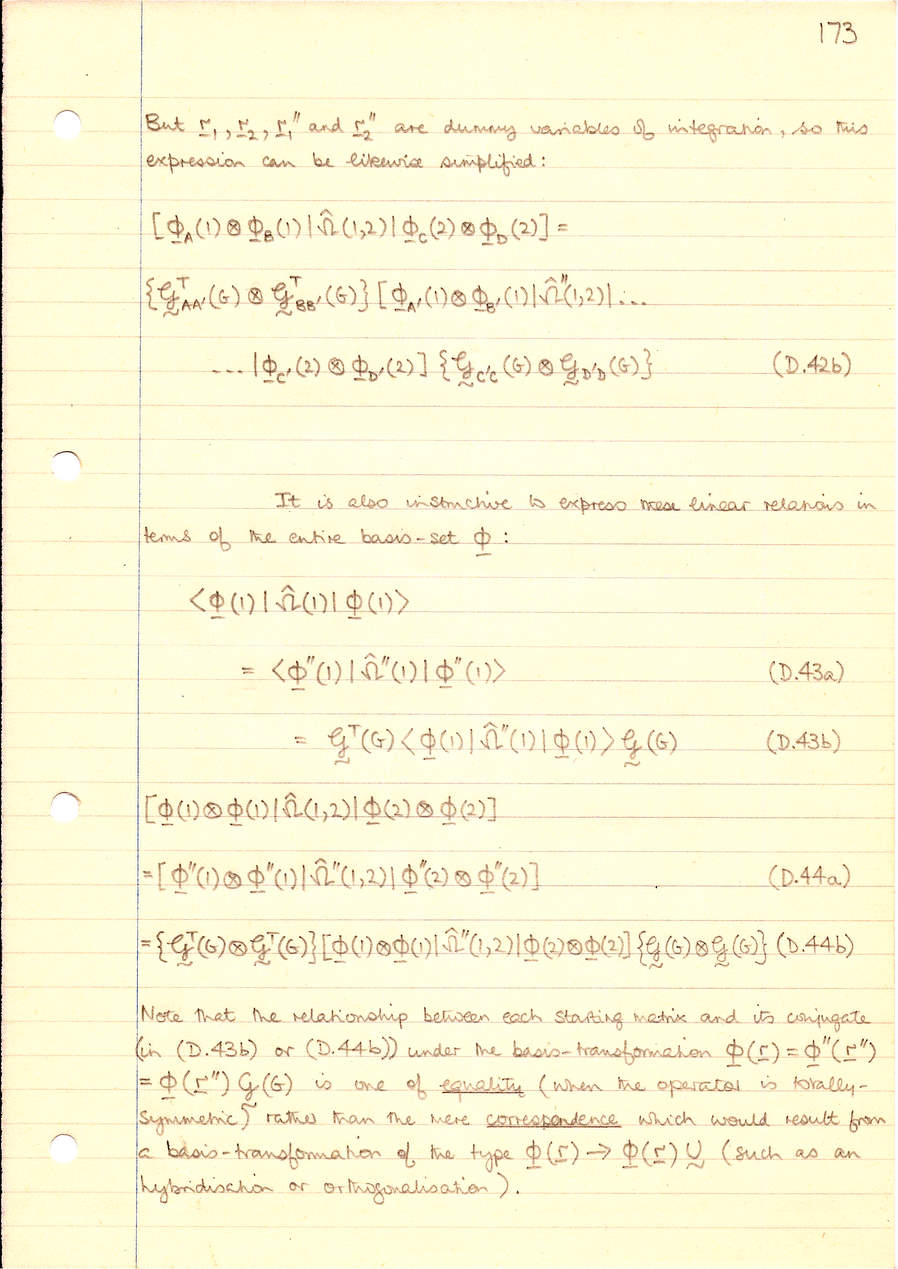 173
But r̲₁, r̲₂, r̲₁″ and r̲₂″ are dummy variables of integration, so this
expression can be likewise simplified:
[Φ̲_A(1)⊗Φ̲_B(1)|Ω̂(1,2)|Φ̲_C(2)⊗Φ̲_D(2)] =
{𝒢̰ᵀ_AA′(G)⊗𝒢̰ᵀ_BB′(G)}[Φ̲_A′(1)⊗Φ̲_B′(1)|Ω̂″(1,2)|...
...|Φ̲_C′(2)⊗Φ̲_D′(2)]{𝒢̰_C′C(G)⊗𝒢̰_D′D(G)} (D.42b)
It is also instructive to express these linear relations in
terms of the entire basis-set Φ̲ :
<Φ̲(1)|Ω̂(1)|Φ̲(1)>
= <Φ̲″(1)|Ω̂″(1)|Φ̲″(1)> (D.43a)
= 𝒢̰ᵀ(G)<Φ̲(1)|Ω̂″(1)|Φ̲(1)>𝒢̰(G) (D.43b)
[Φ̲(1)⊗Φ̲(1)|Ω̂(1,2)|Φ̲(2)⊗Φ̲(2)]
=[Φ̲″(1)⊗Φ̲″(1)|Ω̂″(1,2)|Φ̲″(2)⊗Φ̲″(2)] (D.44a)
={𝒢̰ᵀ(G)⊗𝒢̰ᵀ(G)}[Φ̲(1)⊗Φ̲(1)|Ω̂″(1,2)|Φ̲(2)⊗Φ̲(2)]{𝒢̰(G)⊗𝒢̰(G)} (D.44b)
Note that the relationship between each starting matrix and its conjugate
(in (D.43b) or (D.44b)) under the basis-transformation Φ̲(r̲) = Φ̲″(r̲″)
= Φ̲(r̲″) 𝒢̰(G) is one of equality (when the operator is totally-
symmetric) rather than the mere correspondence which would result from
a basis-transformation of the type Φ̲(r̲) → Φ̲(r̲) Ṵ (such as an
hybridisation or orthogonalisation).